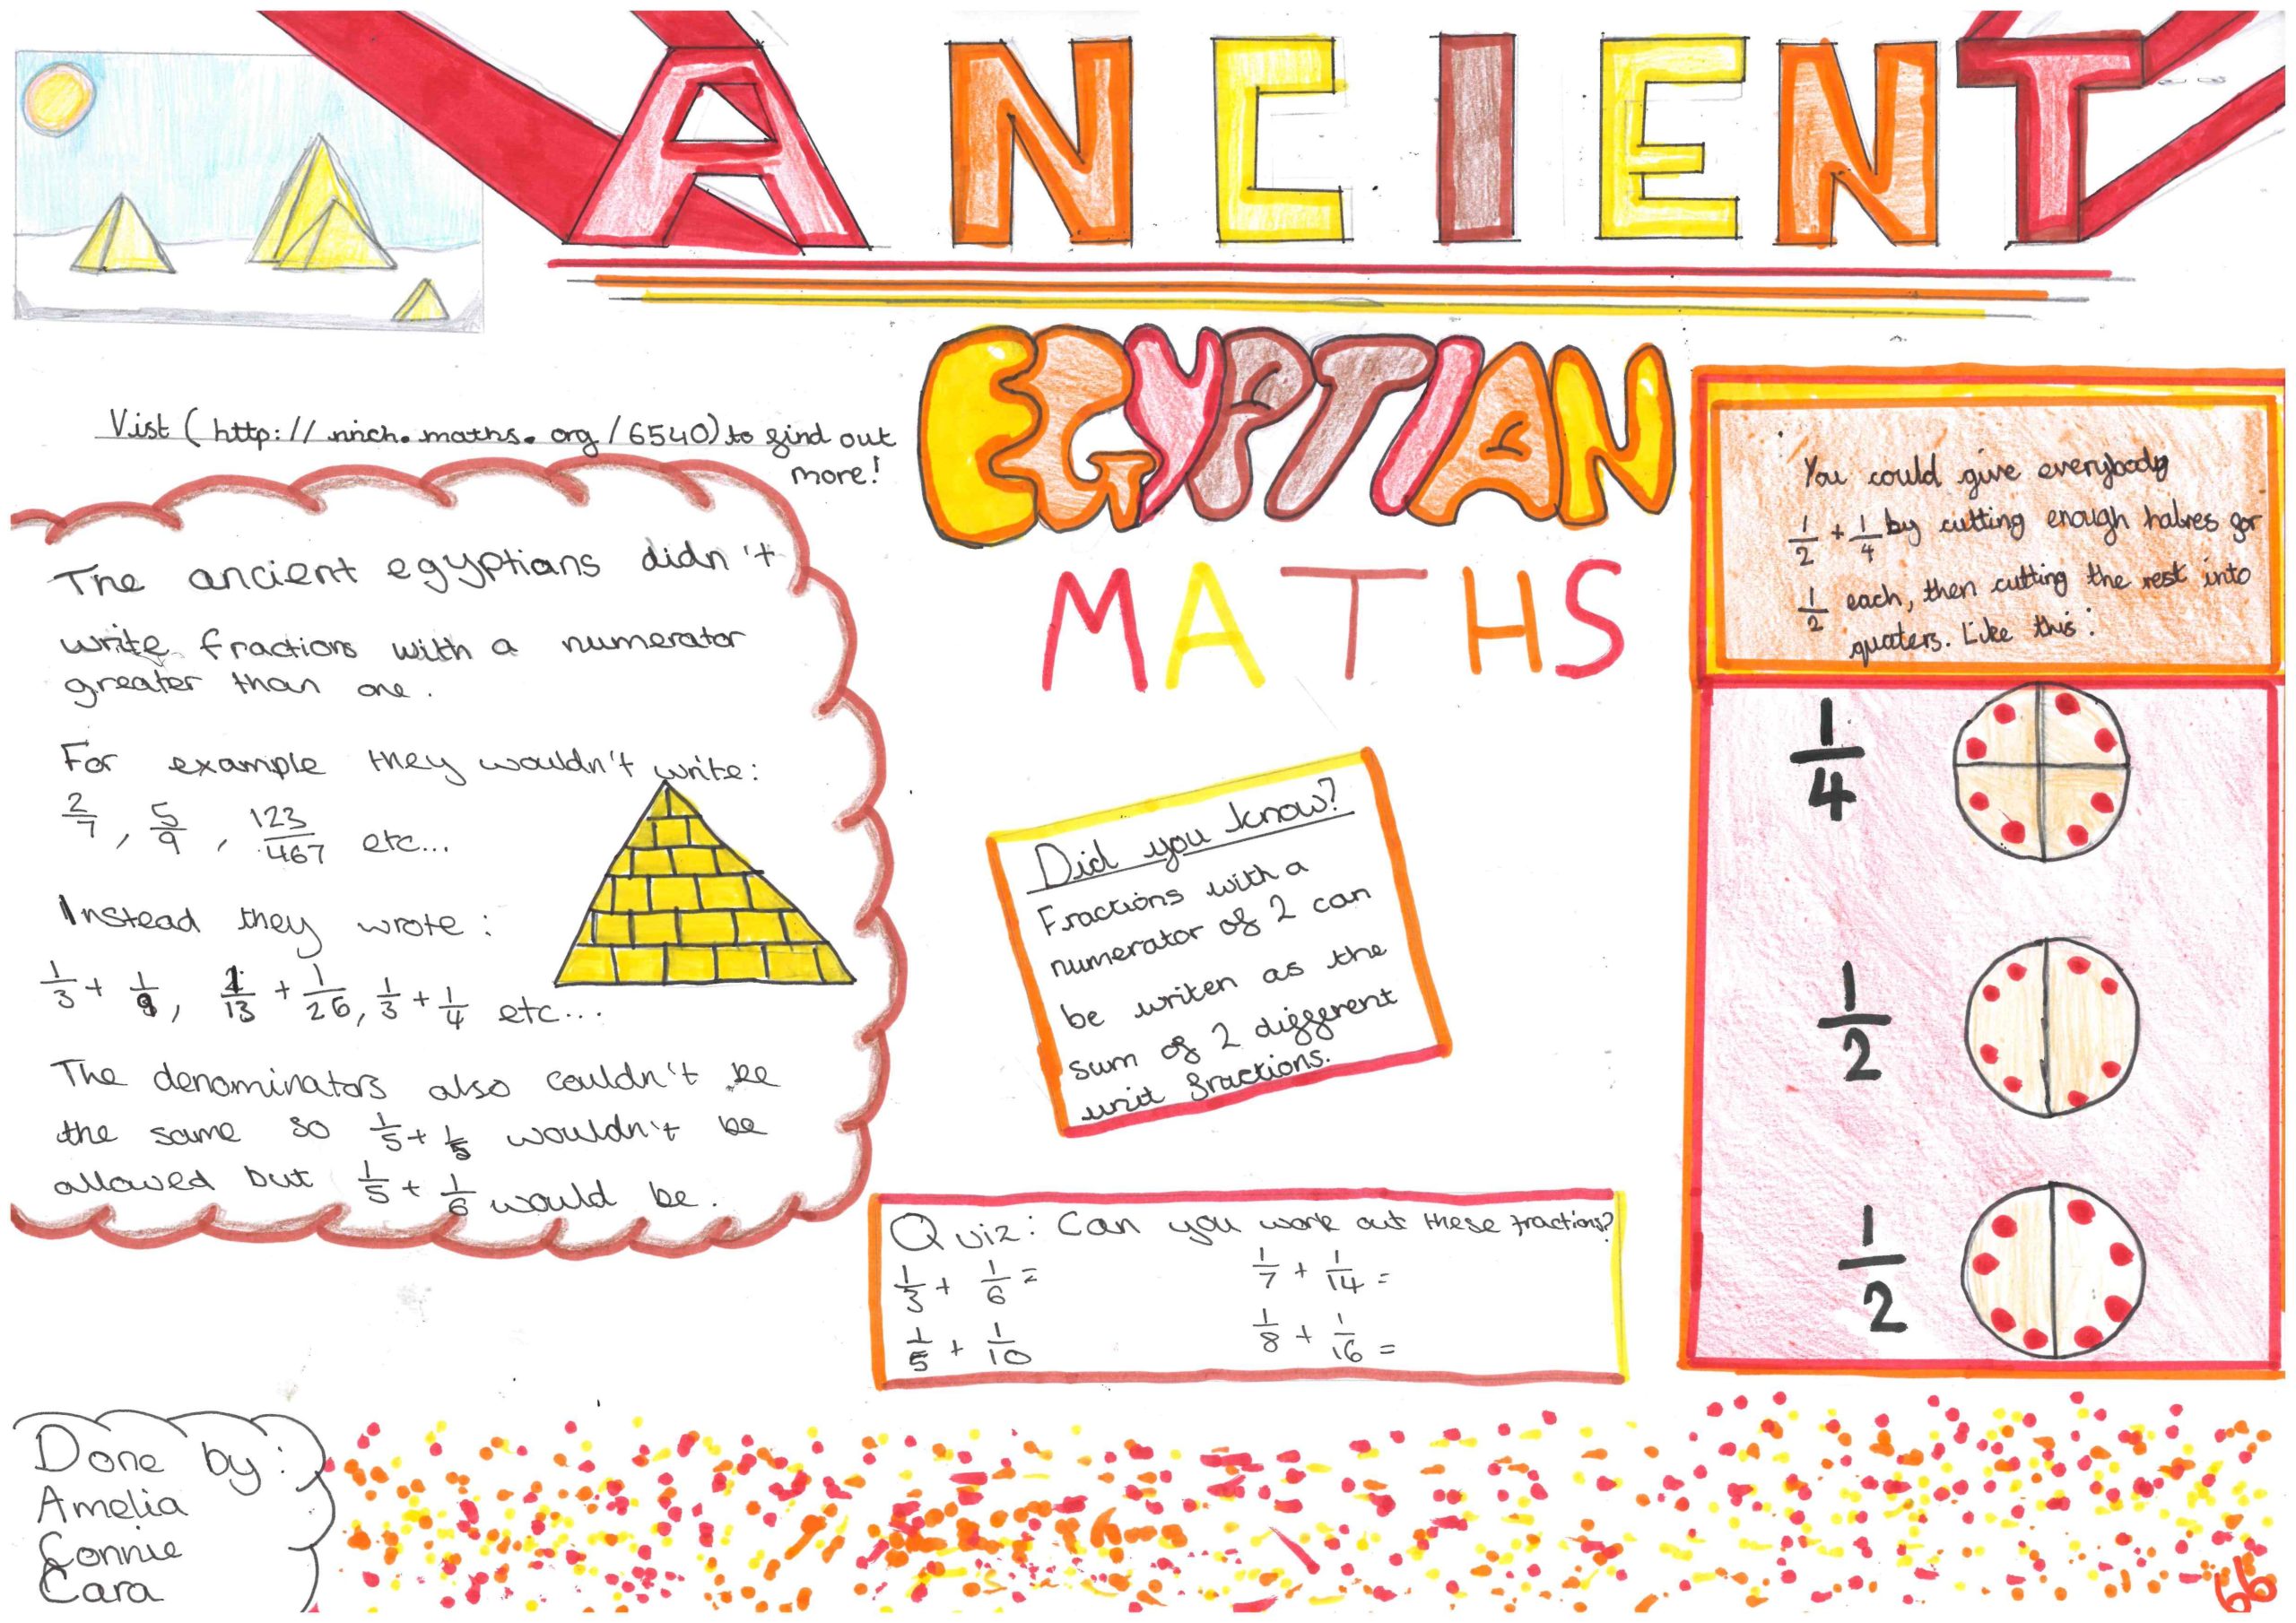 ANCIENT
EGYPTIAN
MATHS
Vist (http://nrich.maths.org/6540) to find out
more!
The ancient egyptians didn't
write fractions with a numerator
greater than one.
For example they wouldn't write:
2/7, 5/9, 123/467 etc...
Instead they wrote:
1/3 + 1/9, 1/13 + 1/26, 1/3 + 1/4 etc...
The denominators also couldn't be
the same so 1/5 + 1/5 wouldn't be
allowed but 1/5 + 1/6 would be.
Did you know?
Fractions with a
numerator of 2 can
be writen as the
sum of 2 different
unit fractions.
Quiz: Can you work out these fractions?
1/3 + 1/6 =
1/7 + 1/14 =
1/5 + 1/10
1/8 + 1/16 =
You could give everybody
1/2 + 1/4 by cutting enough halves for
1/2 each, then cutting the rest into
quaters. Like this:
1/4
1/2
1/2
Done by:
Amelia
Connie
Cara
66